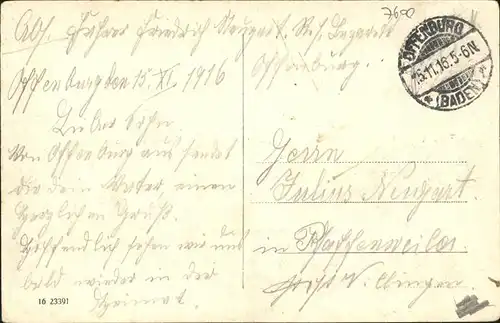 7600
Abs. Fahrer Friedrich Neugart. Res. Lazarett
Offenburg.
OFFENBURG
15.11.16.5-6N
* (BADEN) *
Offenburg den 15. XI. 1916
Lieber Sohn
Von Offenburg aus sendet
dir dein Vater einen
herzlichen Gruß.
Hoffendlich sehen wir uns
bald wieder in der
Heimat.
Herrn
Julius Neugart.
in Pfaffenweiler.
Post V. Villingen
16 23391